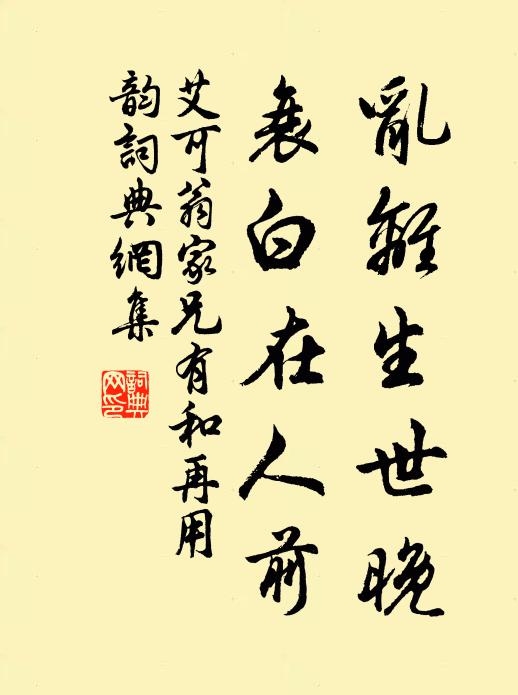 亂離生世晚
衰白在人前
艾可翁家兄有和再用
韵詞典網集
詞典
网印